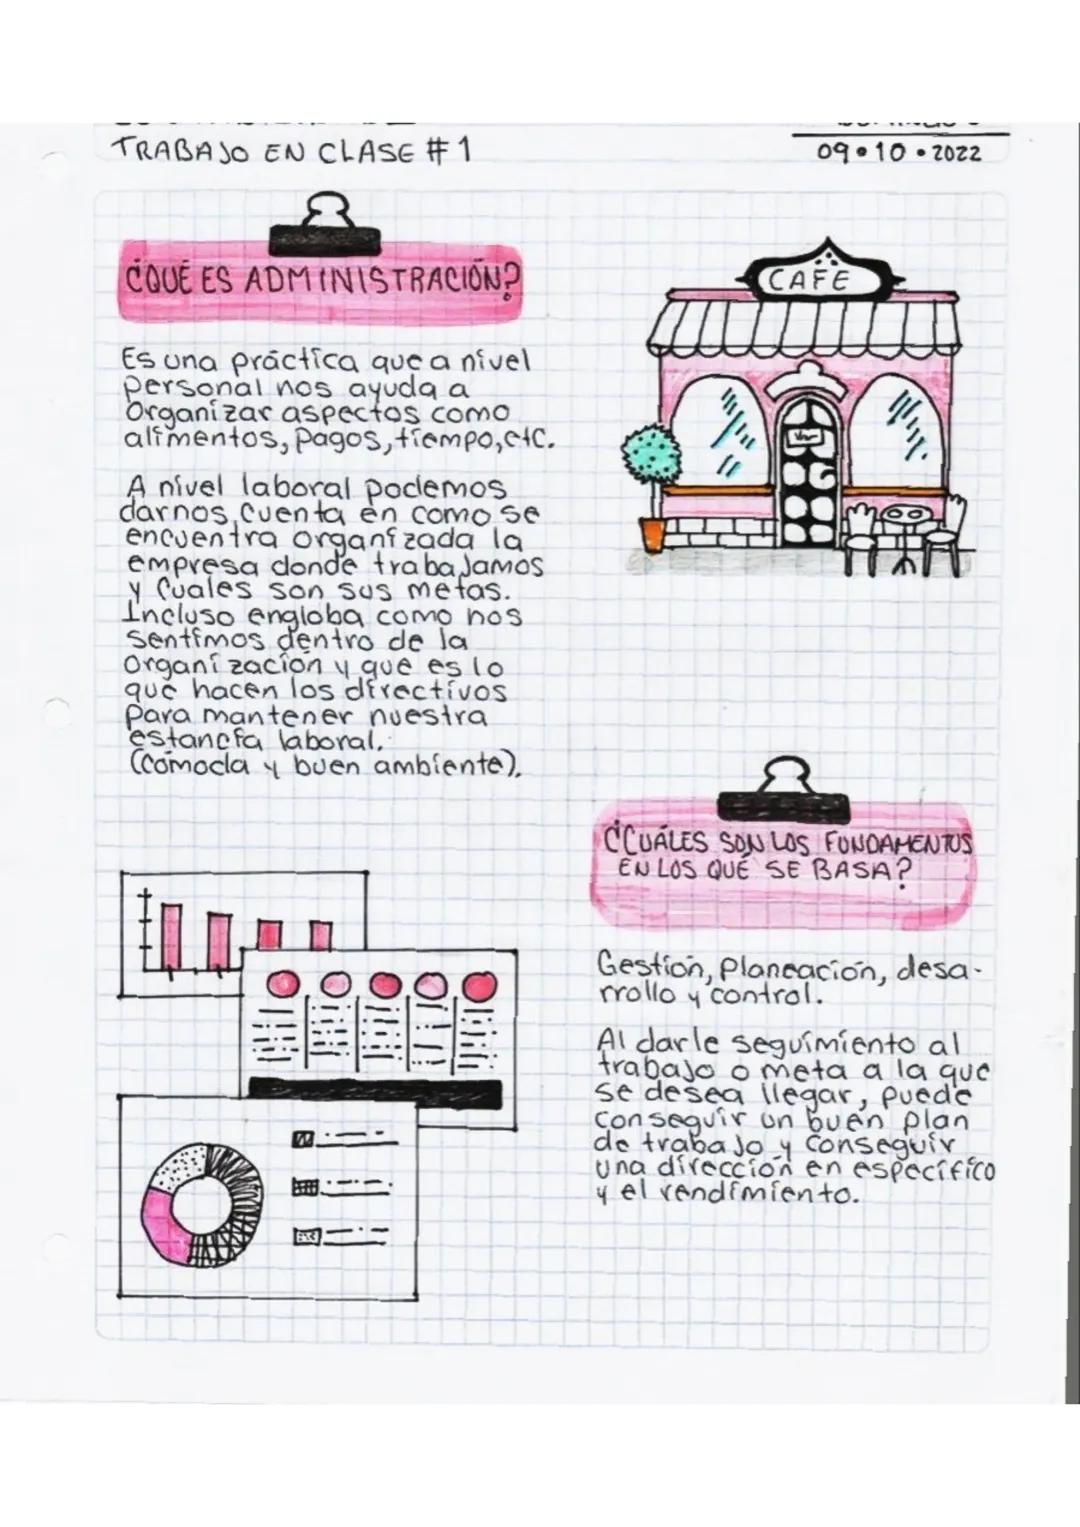 TRABAJO EN CLASE #1
09•10•2022
¿QUÉ ES ADMINISTRACIÓN?
Es una práctica que a nivel
personal nos ayuda a
organizar aspectos como
alimentos, pagos, tiempo, etc.
A nivel laboral podemos
darnos cuenta en como se
encuentra organizada la
empresa donde trabajamos
y cuales son sus metas.
Incluso engloba como nos
sentimos dentro de la
organización y que es lo
que hacen los directivos
para mantener nuestra
estancia laboral.
(cómoda y buen ambiente).
CAFE
¿CUÁLES SON LOS FUNDAMENTOS
EN LOS QUÉ SE BASA?
Gestión, planeación, desa-
rrollo y control.
Al darle seguimiento al
trabajo o meta a la que
se desea llegar, puede
conseguir un buen plan
de trabajo y conseguir
una dirección en específico
y el rendimiento.